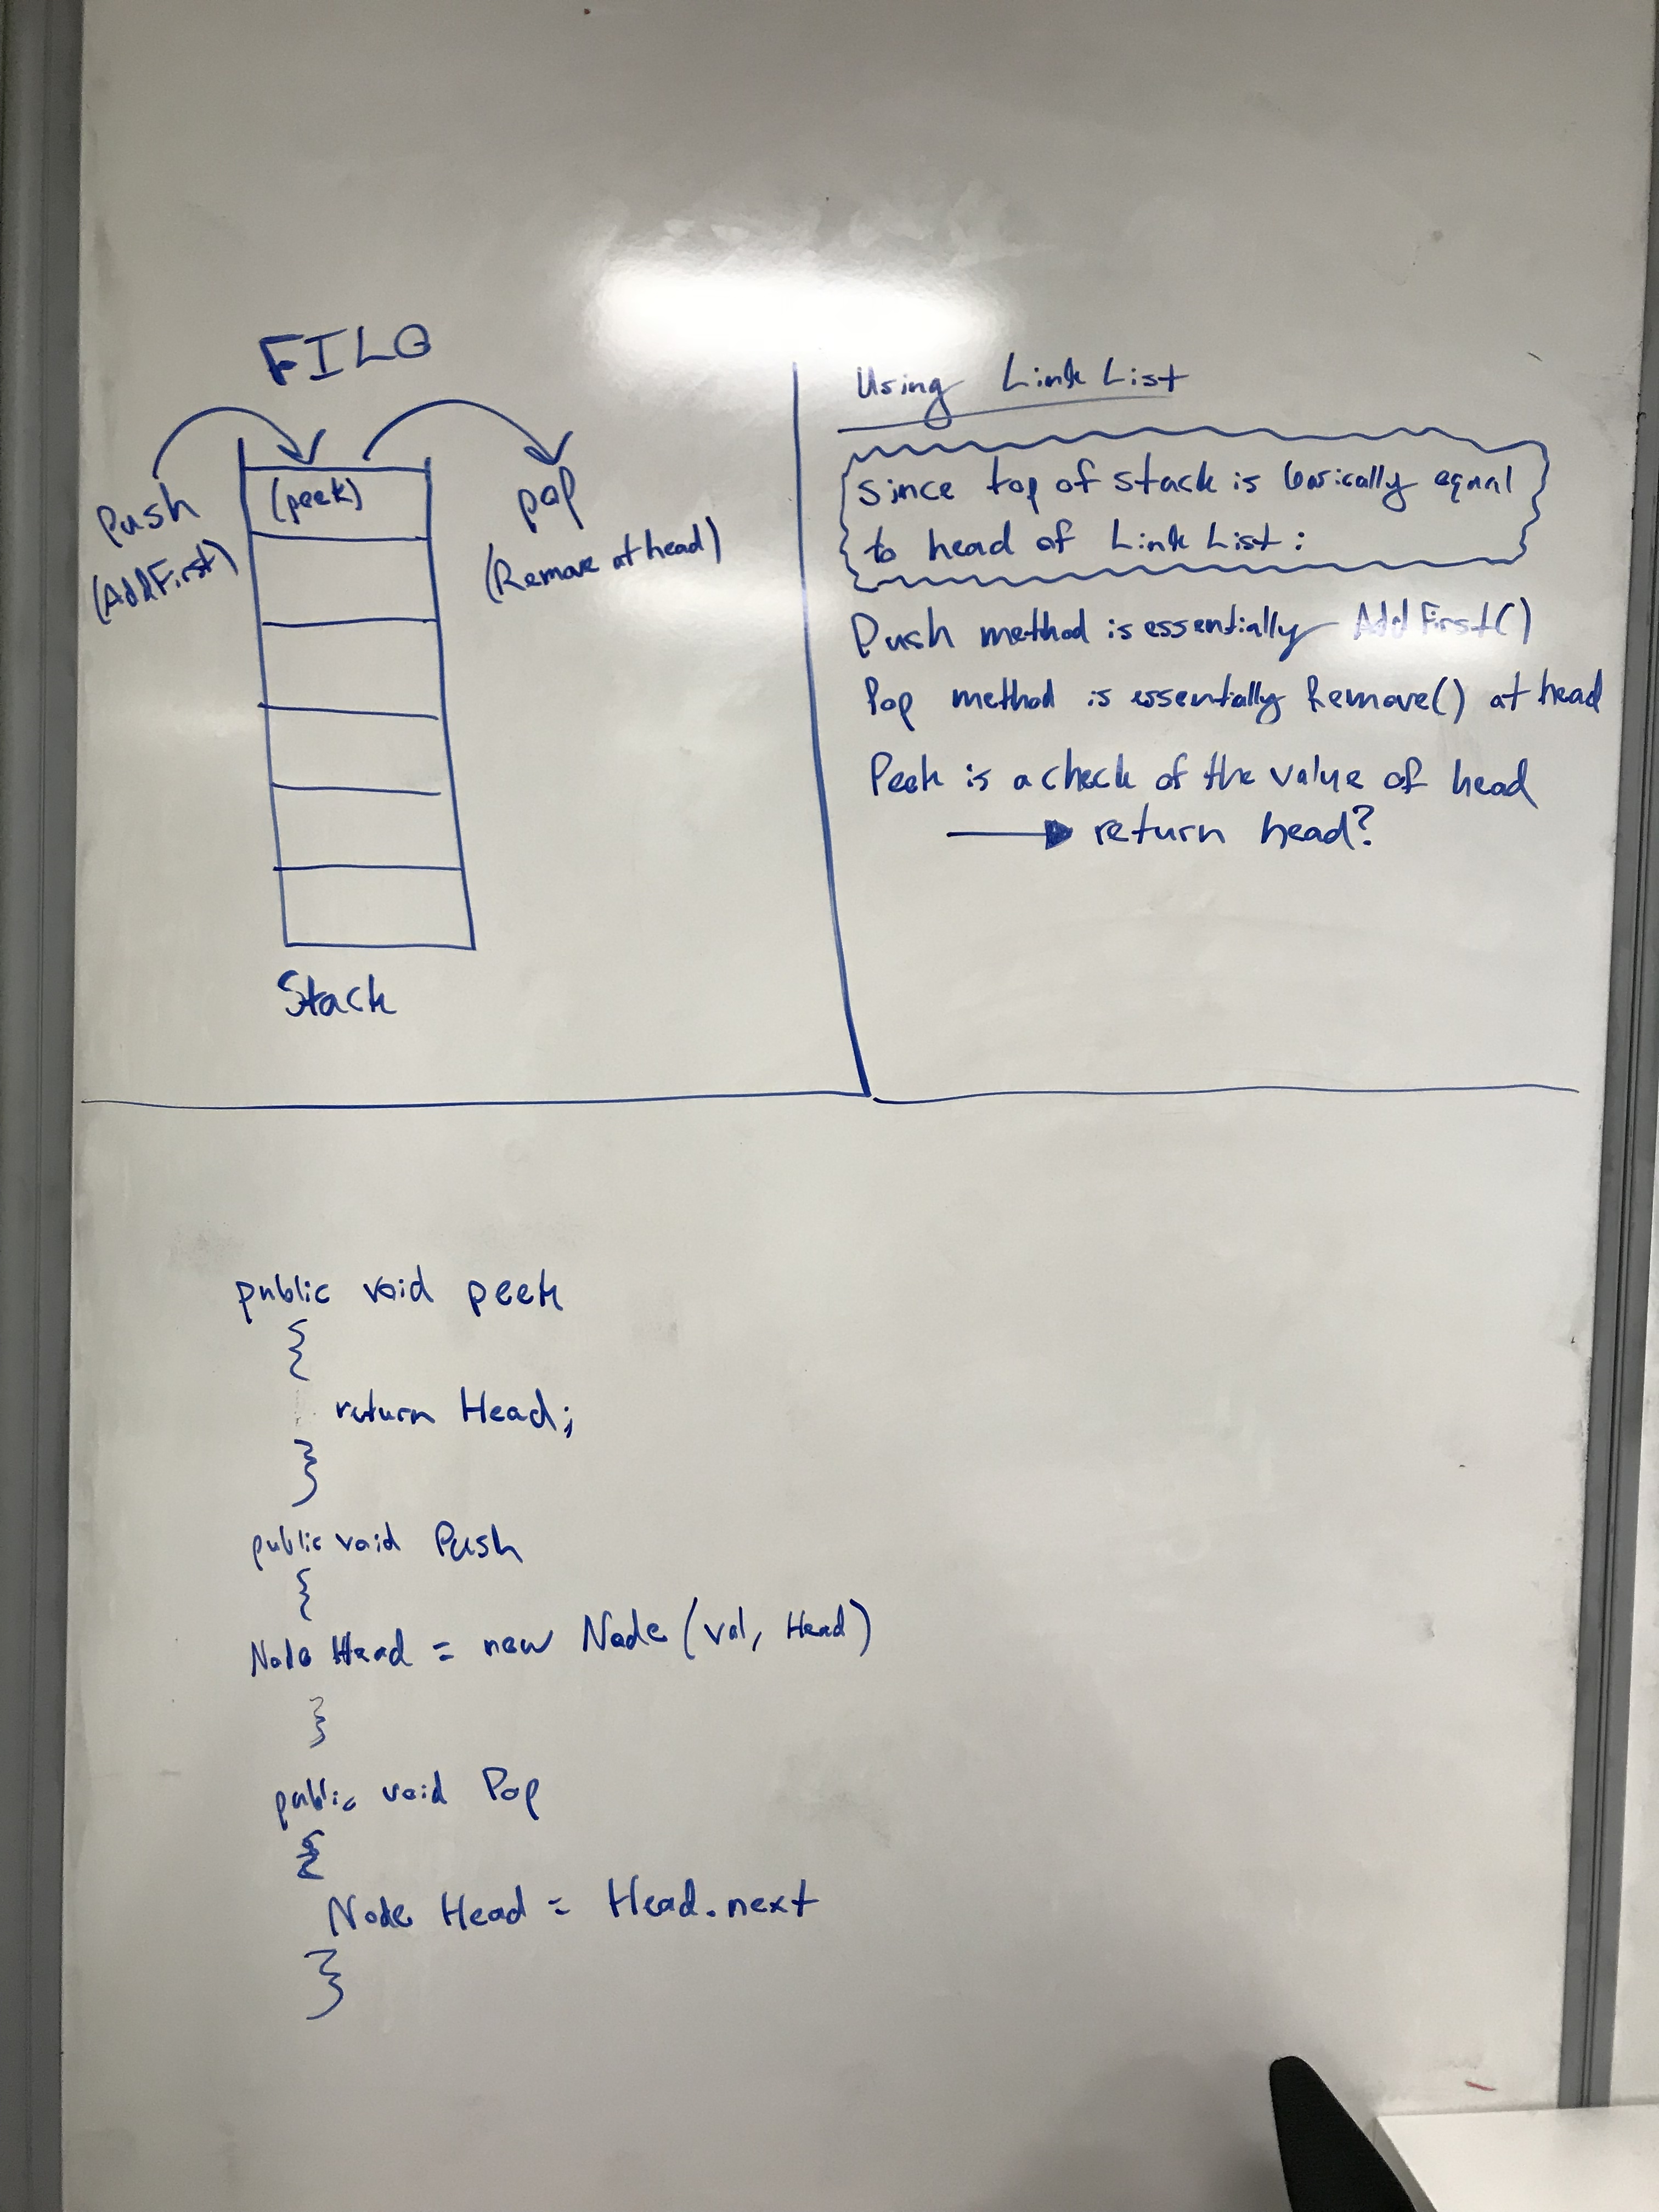 FILO
Push
(AddFirst)
(peek)
pop
(Remove at head)
Stack
Using Link List
since top of stack is basically equal
to head of Link List:
Push method is essentially AddFirst()
Pop method is essentially Remove() at head
Peek is a check of the value of head
return head?
public void peek
{
return Head;
}
public void Push
{
Node Head = new Node (val, Head)
}
public void Pop
{
Node Head = Head.next
}